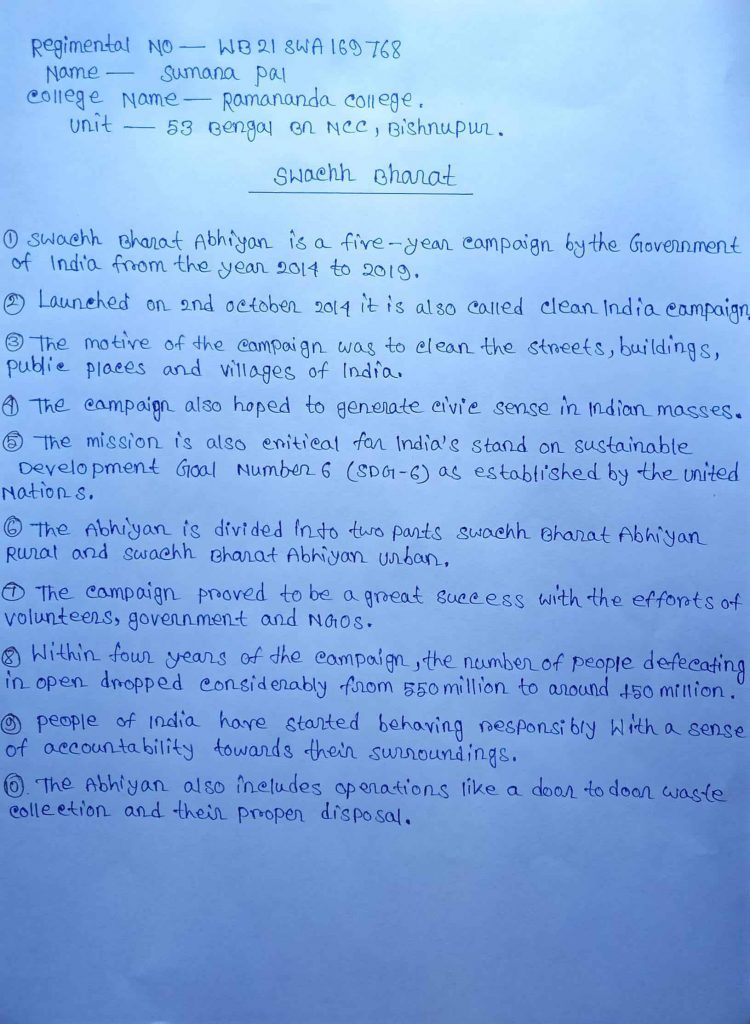 Regimental No — WB21SWA169768
Name — Sumana Pal
College Name — Ramananda College.
Unit — 53 Bengal Bn NCC, Bishnupur.
Swachh Bharat
① Swachh Bharat Abhiyan is a five-year campaign by the Government
of India from the year 2014 to 2019.
② Launched on 2nd october 2014 it is also called clean India campaign.
③ The motive of the campaign was to clean the streets, buildings,
public places and villages of India.
④ The campaign also hoped to generate civic sense in Indian masses.
⑤ The mission is also critical for India's stand on sustainable
Development Goal Number 6 (SDG-6) as established by the united
Nations.
⑥ The Abhiyan is divided into two parts Swachh Bharat Abhiyan
Rural and Swachh Bharat Abhiyan urban.
⑦ The campaign proved to be a great success with the efforts of
volunteers, government and NGOs.
⑧ Within four years of the campaign, the number of people defecating
in open dropped considerably from 550 million to around 150 million.
⑨ people of India have started behaving responsibly With a sense
of accountability towards their surroundings.
⑩. The Abhiyan also includes operations like a door to door waste
collection and their proper disposal.